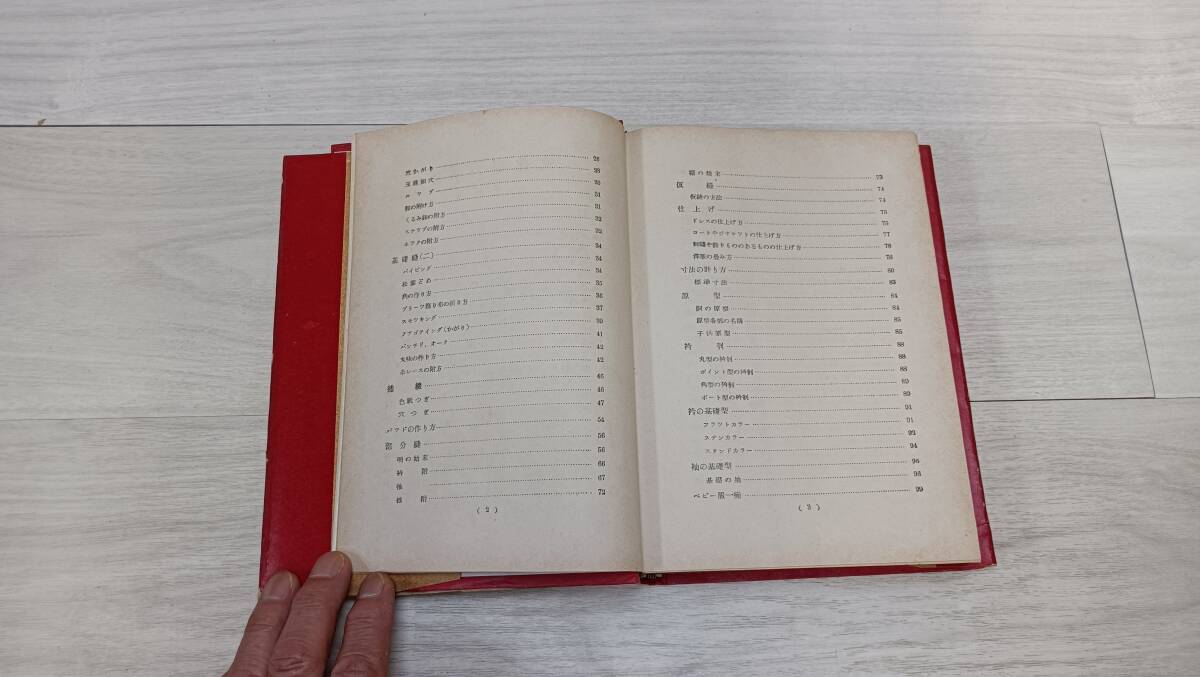 穴かがり 28
28
30
釦の附け方 31
くるみ釦の附方 31
スナップの附方 32
ホックの附方 33
34
基礎縫(二) 34
パイピング 34
松葉どめ 35
角の作り方 36
プリーツ飾り布の折り方 37
スモツキング 39
フアゴテイング(かがり) 41
42
丸紐の作り方 42
糸レースの附方
46
色紙つぎ 46
穴つぎ 47
パツドの作り方 54
部分縫 56
明の始末 56
衿附 66
袖 67
附 72
( 2 )
裾の始末 73
仮縫 74
仮縫の方法 74
仕上げ 75
ドレスの仕上げ方 75
コートやジヤケツトの仕上げ方 77
刺繡や飾りもののあるものの仕上げ方 78
78
寸法の計り方 80
標準寸法 83
原型 84
胴の原型 84
原型各部の名稱 85
子供原型 85
衿刳 88
丸型の衿刳 88
ポイント型の衿刳 88
角型の衿刳 89
ボート型の衿刳 89
衿の基礎型 91
フラツトカラー 91
ステンカラー 92
スタンドカラー 94
袖の基礎型 96
基礎の袖 96
ベビー服一揃 99
( 3 )